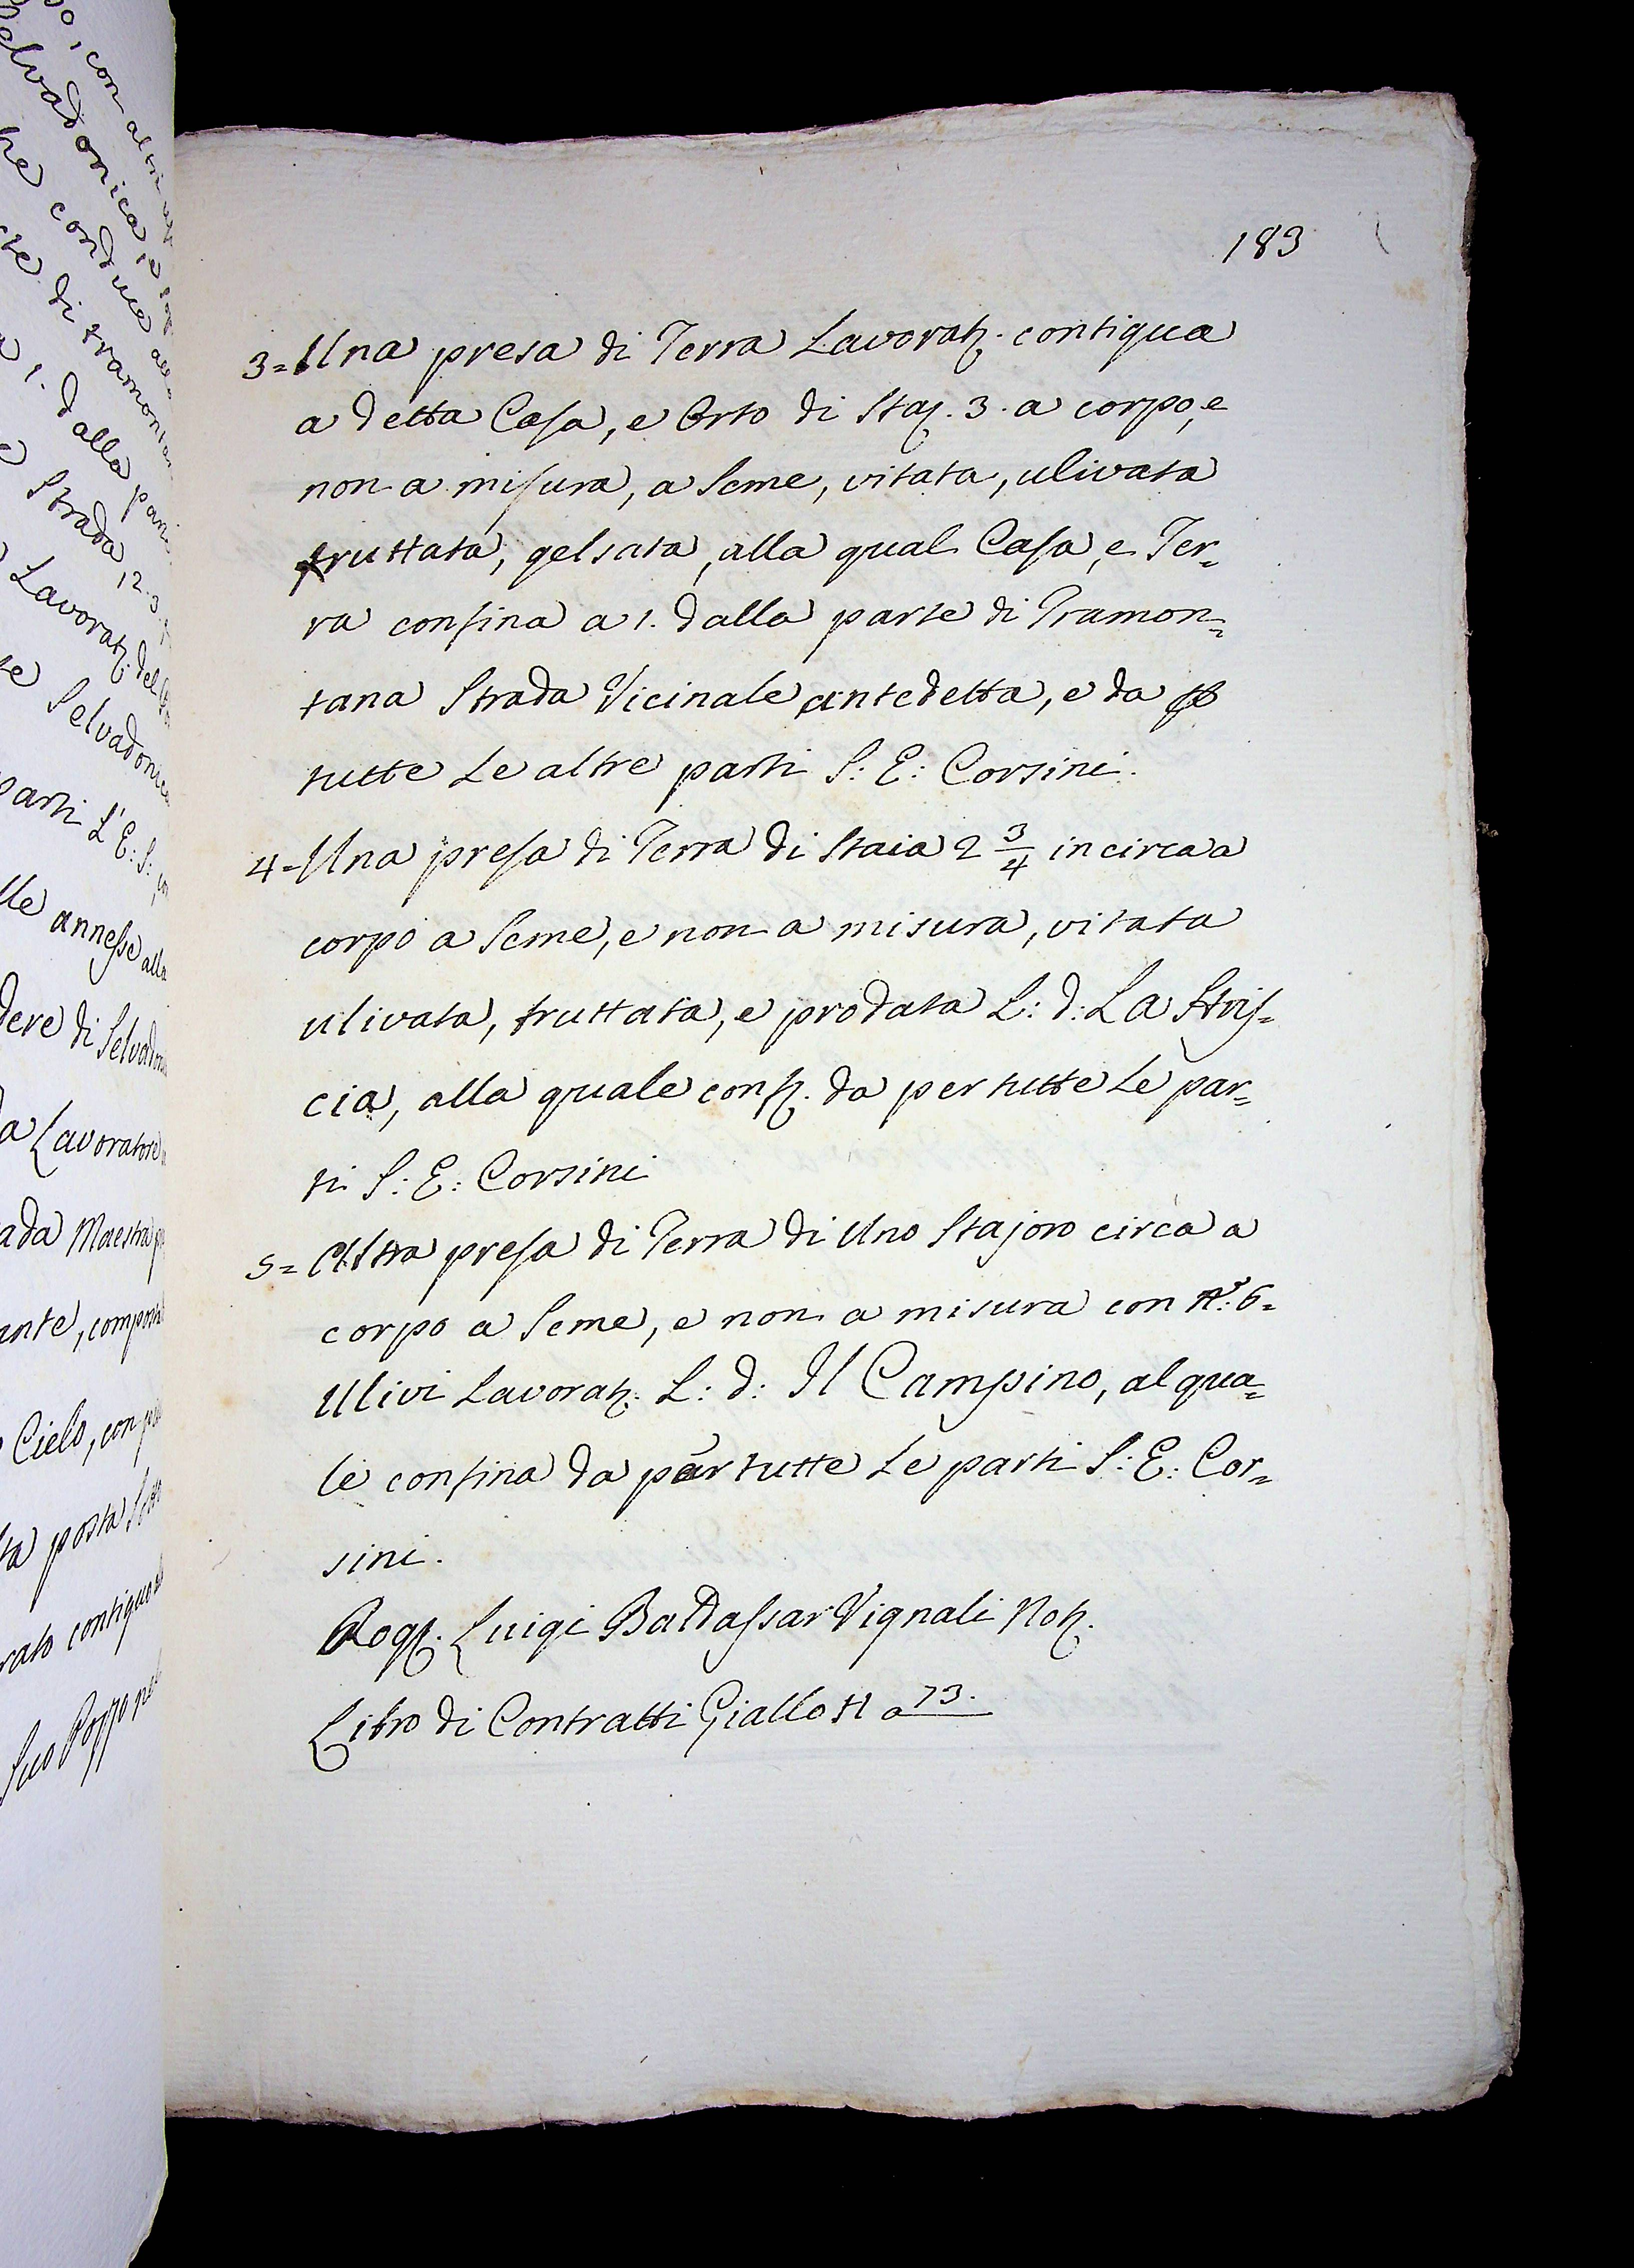 183
3= Una presa di Terra Lavorat. contigua
a detta Casa, e Orto di Staj. 3. a corpo, e
non a misura, a Seme, vitata, ulivata
fruttata, gelsata, alla qual Casa, e Ter=
ra confina a 1. dalla parte di Tramon=
tana Strada Vicinale antedetta, e da
tutte Le altre parti S: E: Corsini.
4= Una presa di Terra di Staia 2 3/4 in circa a
corpo a Seme, e non a misura, vitata
ulivata, fruttata, e prodata L: d: La Stris=
cia, alla quale conf. da per tutte Le par=
ti S: E: Corsini
5= Altra presa di Terra di Uno Stajoro circa a
corpo a Seme, e non a misura con N.º: 6=
Ulivi Lavorat. L: d: Il Campino, al qua=
le confina da per tutte Le parti S: E: Cor=
sini.
Rog. Luigi Baldassar Vignali Not.
Libro di Contratti Giallo H a 73.
Selvadonica
che conduce alla
di tramontan
1. dalla par
Strada 12. 3.
Lavorat. del
Selvadonica
parti L'E: S:
annesse alla
di Selvadon
Lavorator
Maestra
compost
Cielo, con
posta
contiguo
Suo Pozzo